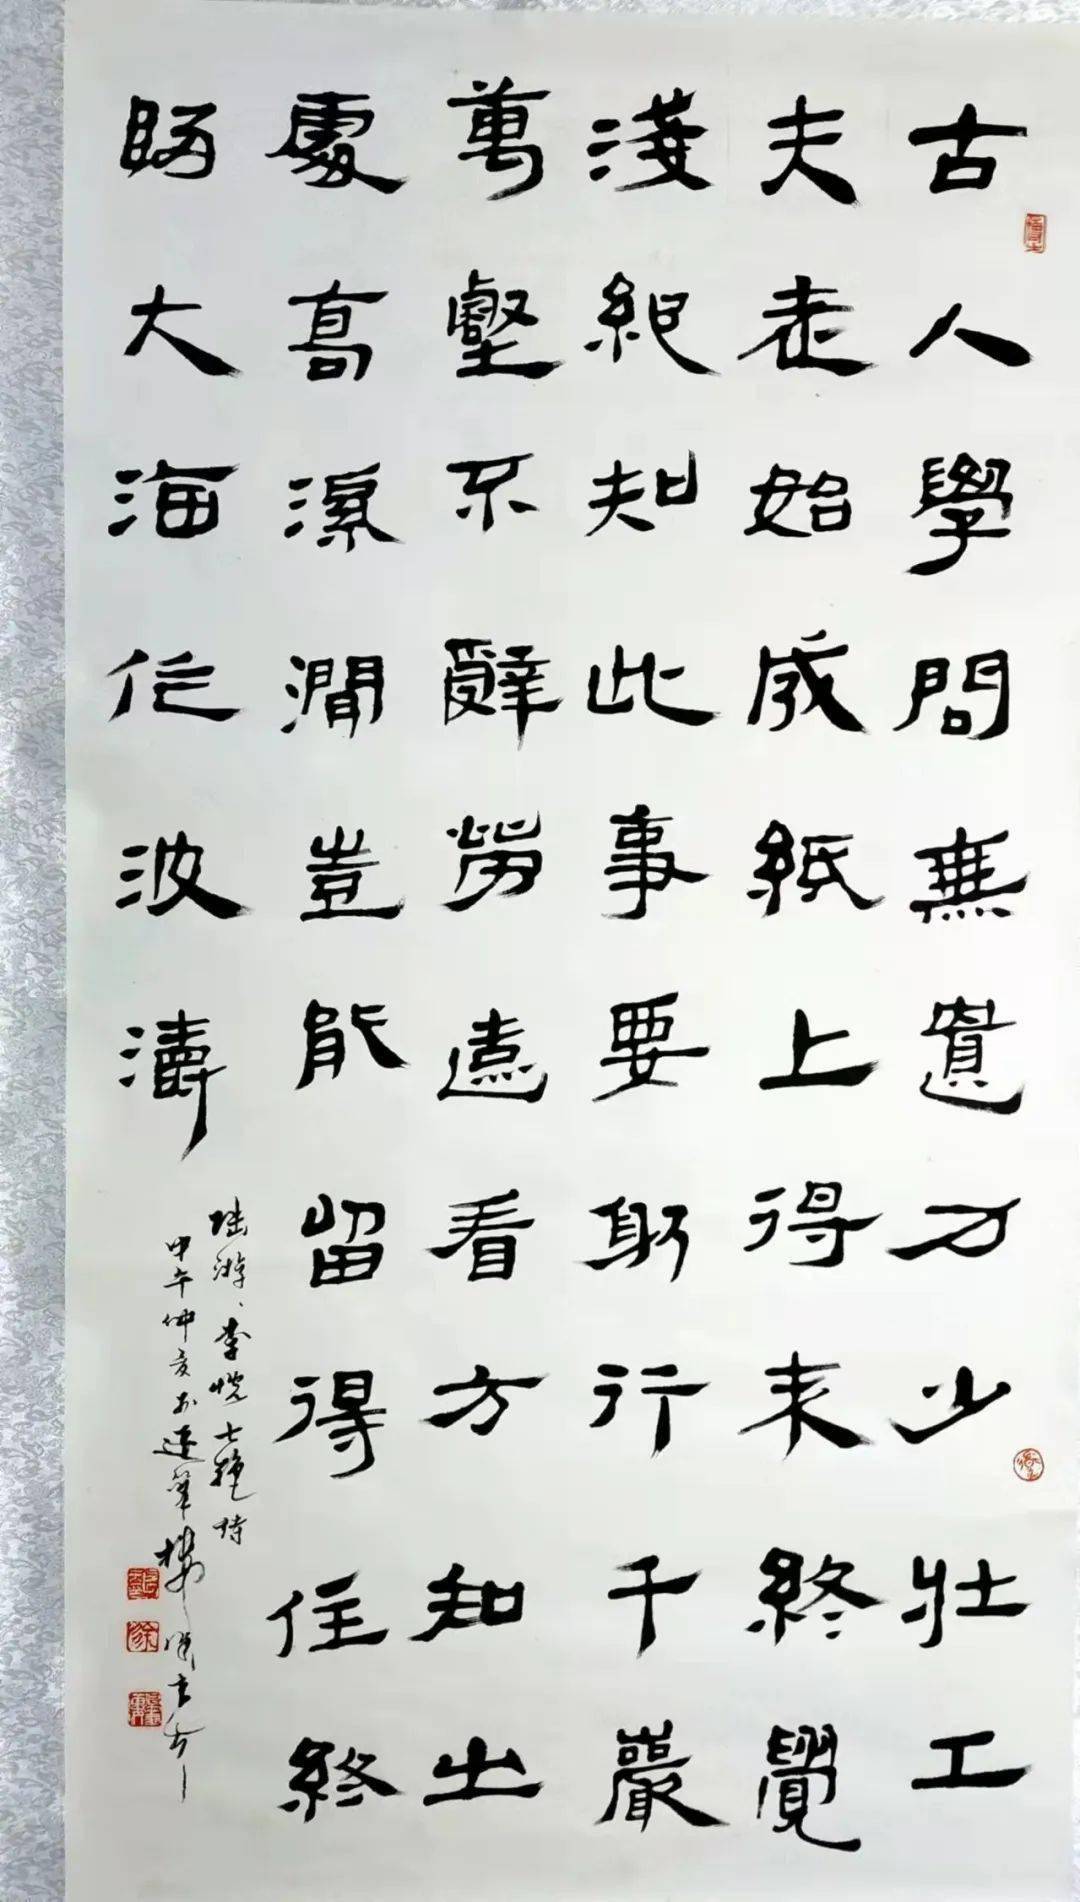 古人學問無遺力少壯工
夫老始成紙上得來終覺
淺絕知此事要躬行千巖
萬壑不辭勞遠看方知出
處高溪澗豈能留得住終
歸大海作波濤
陸游、李忱七絕詩
甲午仲夏於